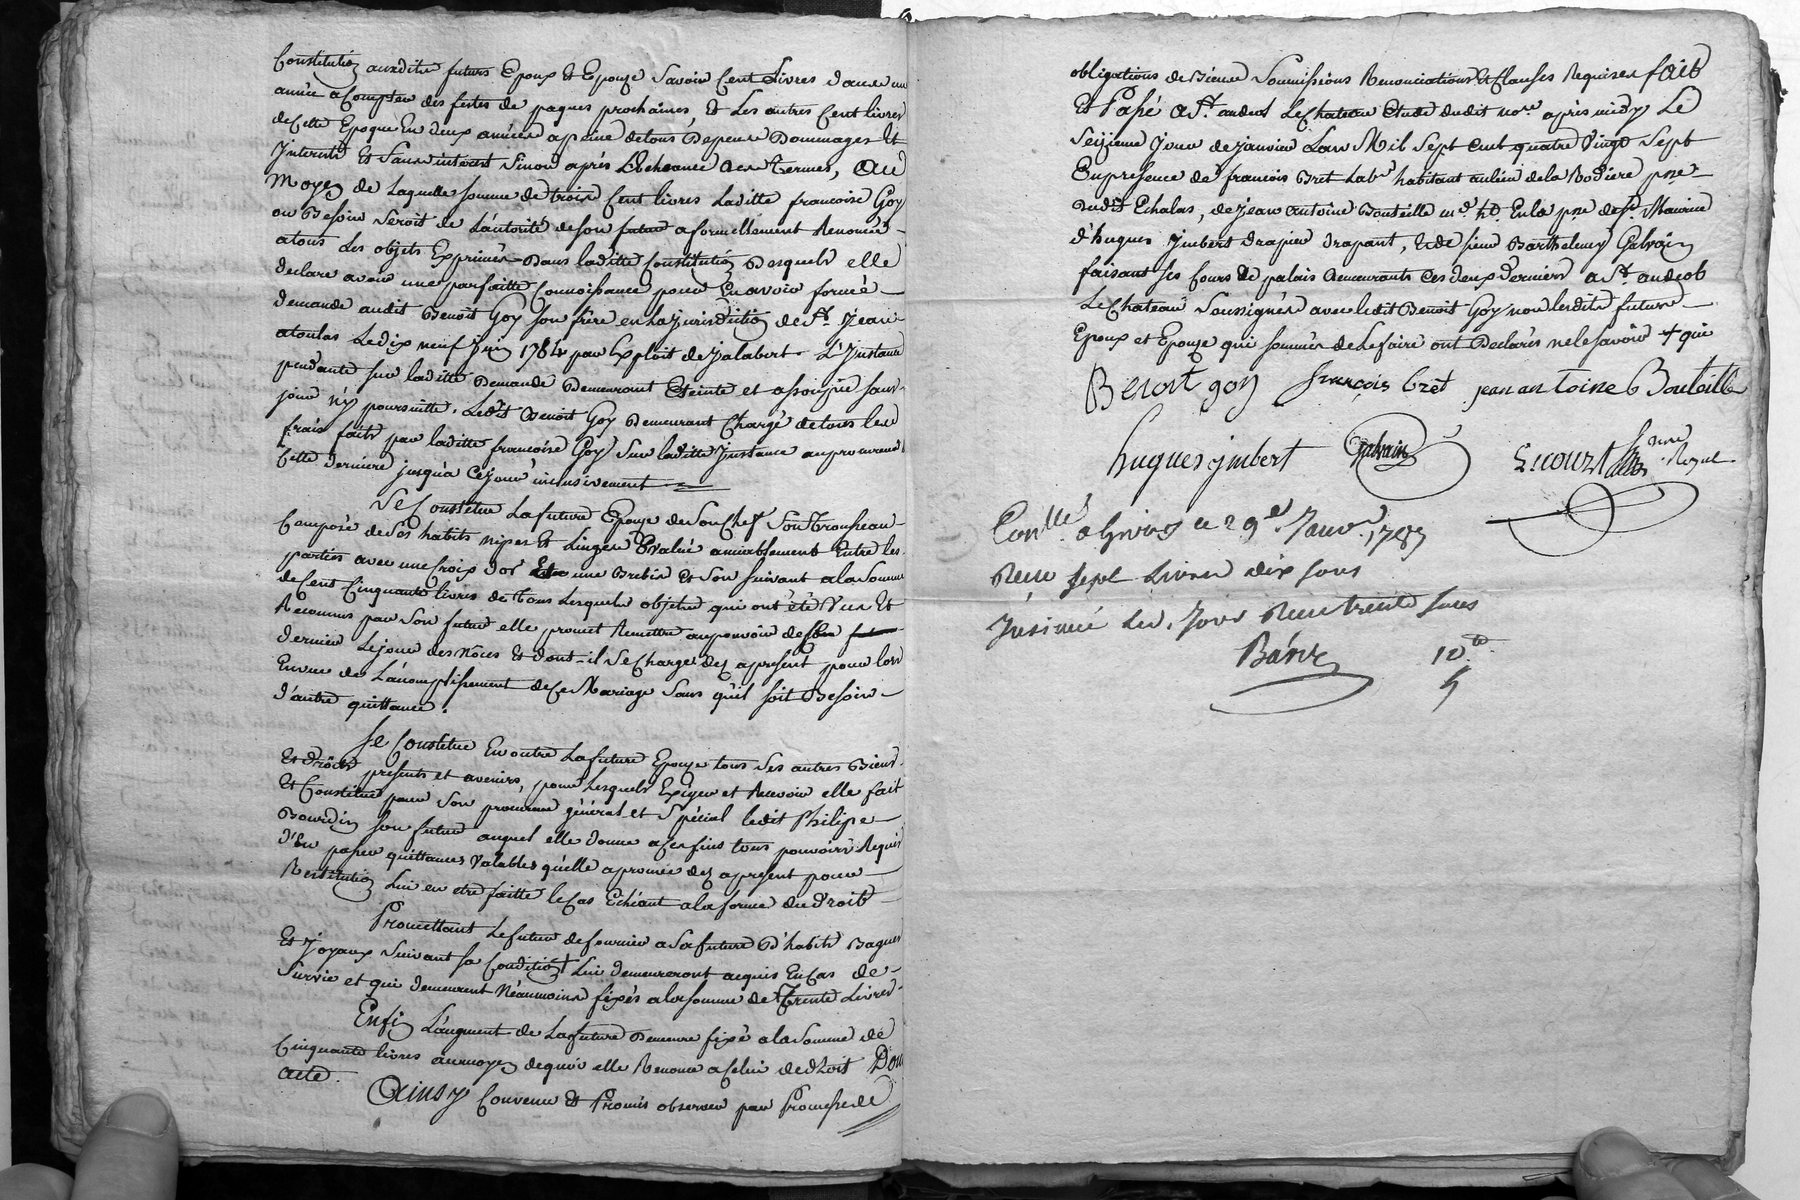 Constitution auxdits futurs Epoux et Epouze Savoir Cent Livres dans un
année a Compter des festes de paques prochaines, et Les autres Cent livres
de Cette Epoque En deux années a peine de tous Depens Dommages Et
Interets Et Sans interest Sinon après L'Echeance des termes, Au
Moyen de Laquelle somme de trois Cent livres Laditte francoise Goy
ou Besoin Seroit de L'autorité de son futur a formellement Renoncé
atous Les objets Exprimés Dans laditte Constitution Desquels elle
declare avoir une parfaitte Connoissance pour En avoir formé
demande audit Benoît Goy son frère en La Jurisdiction de St. Jean
atoulas Le dix neuf Juin 1784 par Exploit de Jalabert. L'Instance
pendante sur laditte Demande Demeurant Eteinte et assoupie sans
jour n'y poursuitte. Ledit Benoît Goy Demeurant Chargé de tous les
frais faits par laditte francoise Goy Sur laditte Instance au procureur
Cette derniere jusqu'a Cejour inclusivement
Se Constitue La future Epouze de Son Chef Son Trousseau
Composé de Ses habits nipes Et Linges Evalué amiablement Entre les
parties avec une Croix d'or une Brebis et Son Suivant a la Somme
de Cent Cinquante livres de Tous Lesquels objets qui ont été Vus Et
Reconnus par Son futur elle promet Remettre au pouvoir de
dernier Le jour des Nôces Et dont il Se Charge dez apresent pour lors
Envue de L'acomplissement de Ce Mariage Sans qu'il soit Besoin
d'autre quittance.
Se Constitue En outre La future Epouze tous Ses autres Biens
Et droits presents et avenirs, pour Lesquels Exiger et Recevoir elle fait
Et Constitue pour Son procureur général et Spécial ledit Philipe
Bourdin son futur auquel elle donne a Ces fins tous pouvoirs Requis
d'En passer quittances Valables qu'elle aprouvee dez apresent pour
Restitution Lui en etre faitte le Cas Echéant a la forme du Droit
Promettant Le futur de fournir a Sa future D'habits Bagues
Et Joyaux Suivant Sa Condition Lui demeureront acquis En Cas de
Survie et qui demeurent Néanmoins fixés a la Somme de Trente Livres
Enfin L'augment de La future Demeure fixé a la Somme de
Cinquante livres au moyen de quoi elle Renonce a Celui de droit Dont
acte.
Ainsy Convenu Et Promis observer par Promesses
obligations de Biens Soumissions Renonciations & Clauses Requises fait
Et Passé a St. andeol Le Chateau Etude dudit nore. après midy Le
Seizieme Jour de janvier L'an Mil Sept Cent quatre Vingt Sept
En presence de francois Bret Labr. habitant au lieu de la Rodiere psse
dudit Echalas, de Jean Antoine Bouteille md. ht. En la psse de St. Maurice
d'hugues Imbert drapier drapant, & de sieur Barthelemy Galvain
faisant ses Cours de palais demeurants Ces deux derniers a St. andeol
Le Chateau Soussignés avec ledit Benoît Goy non lesdits futurs
Epoux et Epouze qui sommés de Le faire ont Declarés ne le Savoir + qui
Benoit goy françois bret jean antoine Bouteille
hugues ymbert Galvain
Conllé. a Givors le 29e. Janvr. 1787
Reçu Sept Livres dix Sous
Insinué Led. Jour Reçu trente Sous
10